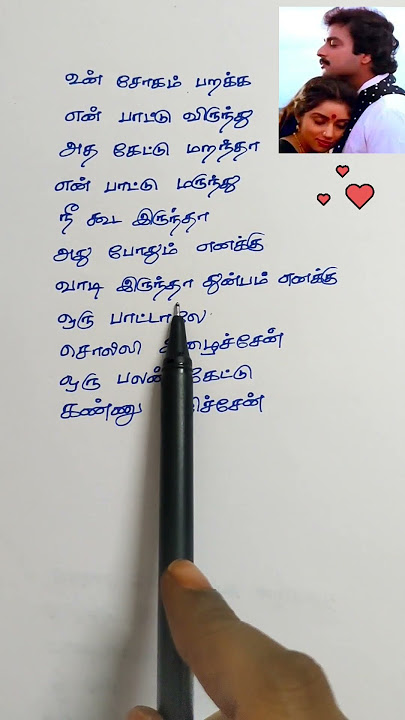 உன் சோகம் பறக்க
என் பாட்டு விருந்து
அத கேட்டு மறந்தா
என் பாட்டு மருந்து
நீ கூட இருந்தா
அது போதும் எனக்கு
வாடி இருந்தா துன்பம் எனக்கு
ஒரு
சொல்லி
ஒரு கேட்டு
கண்ணு